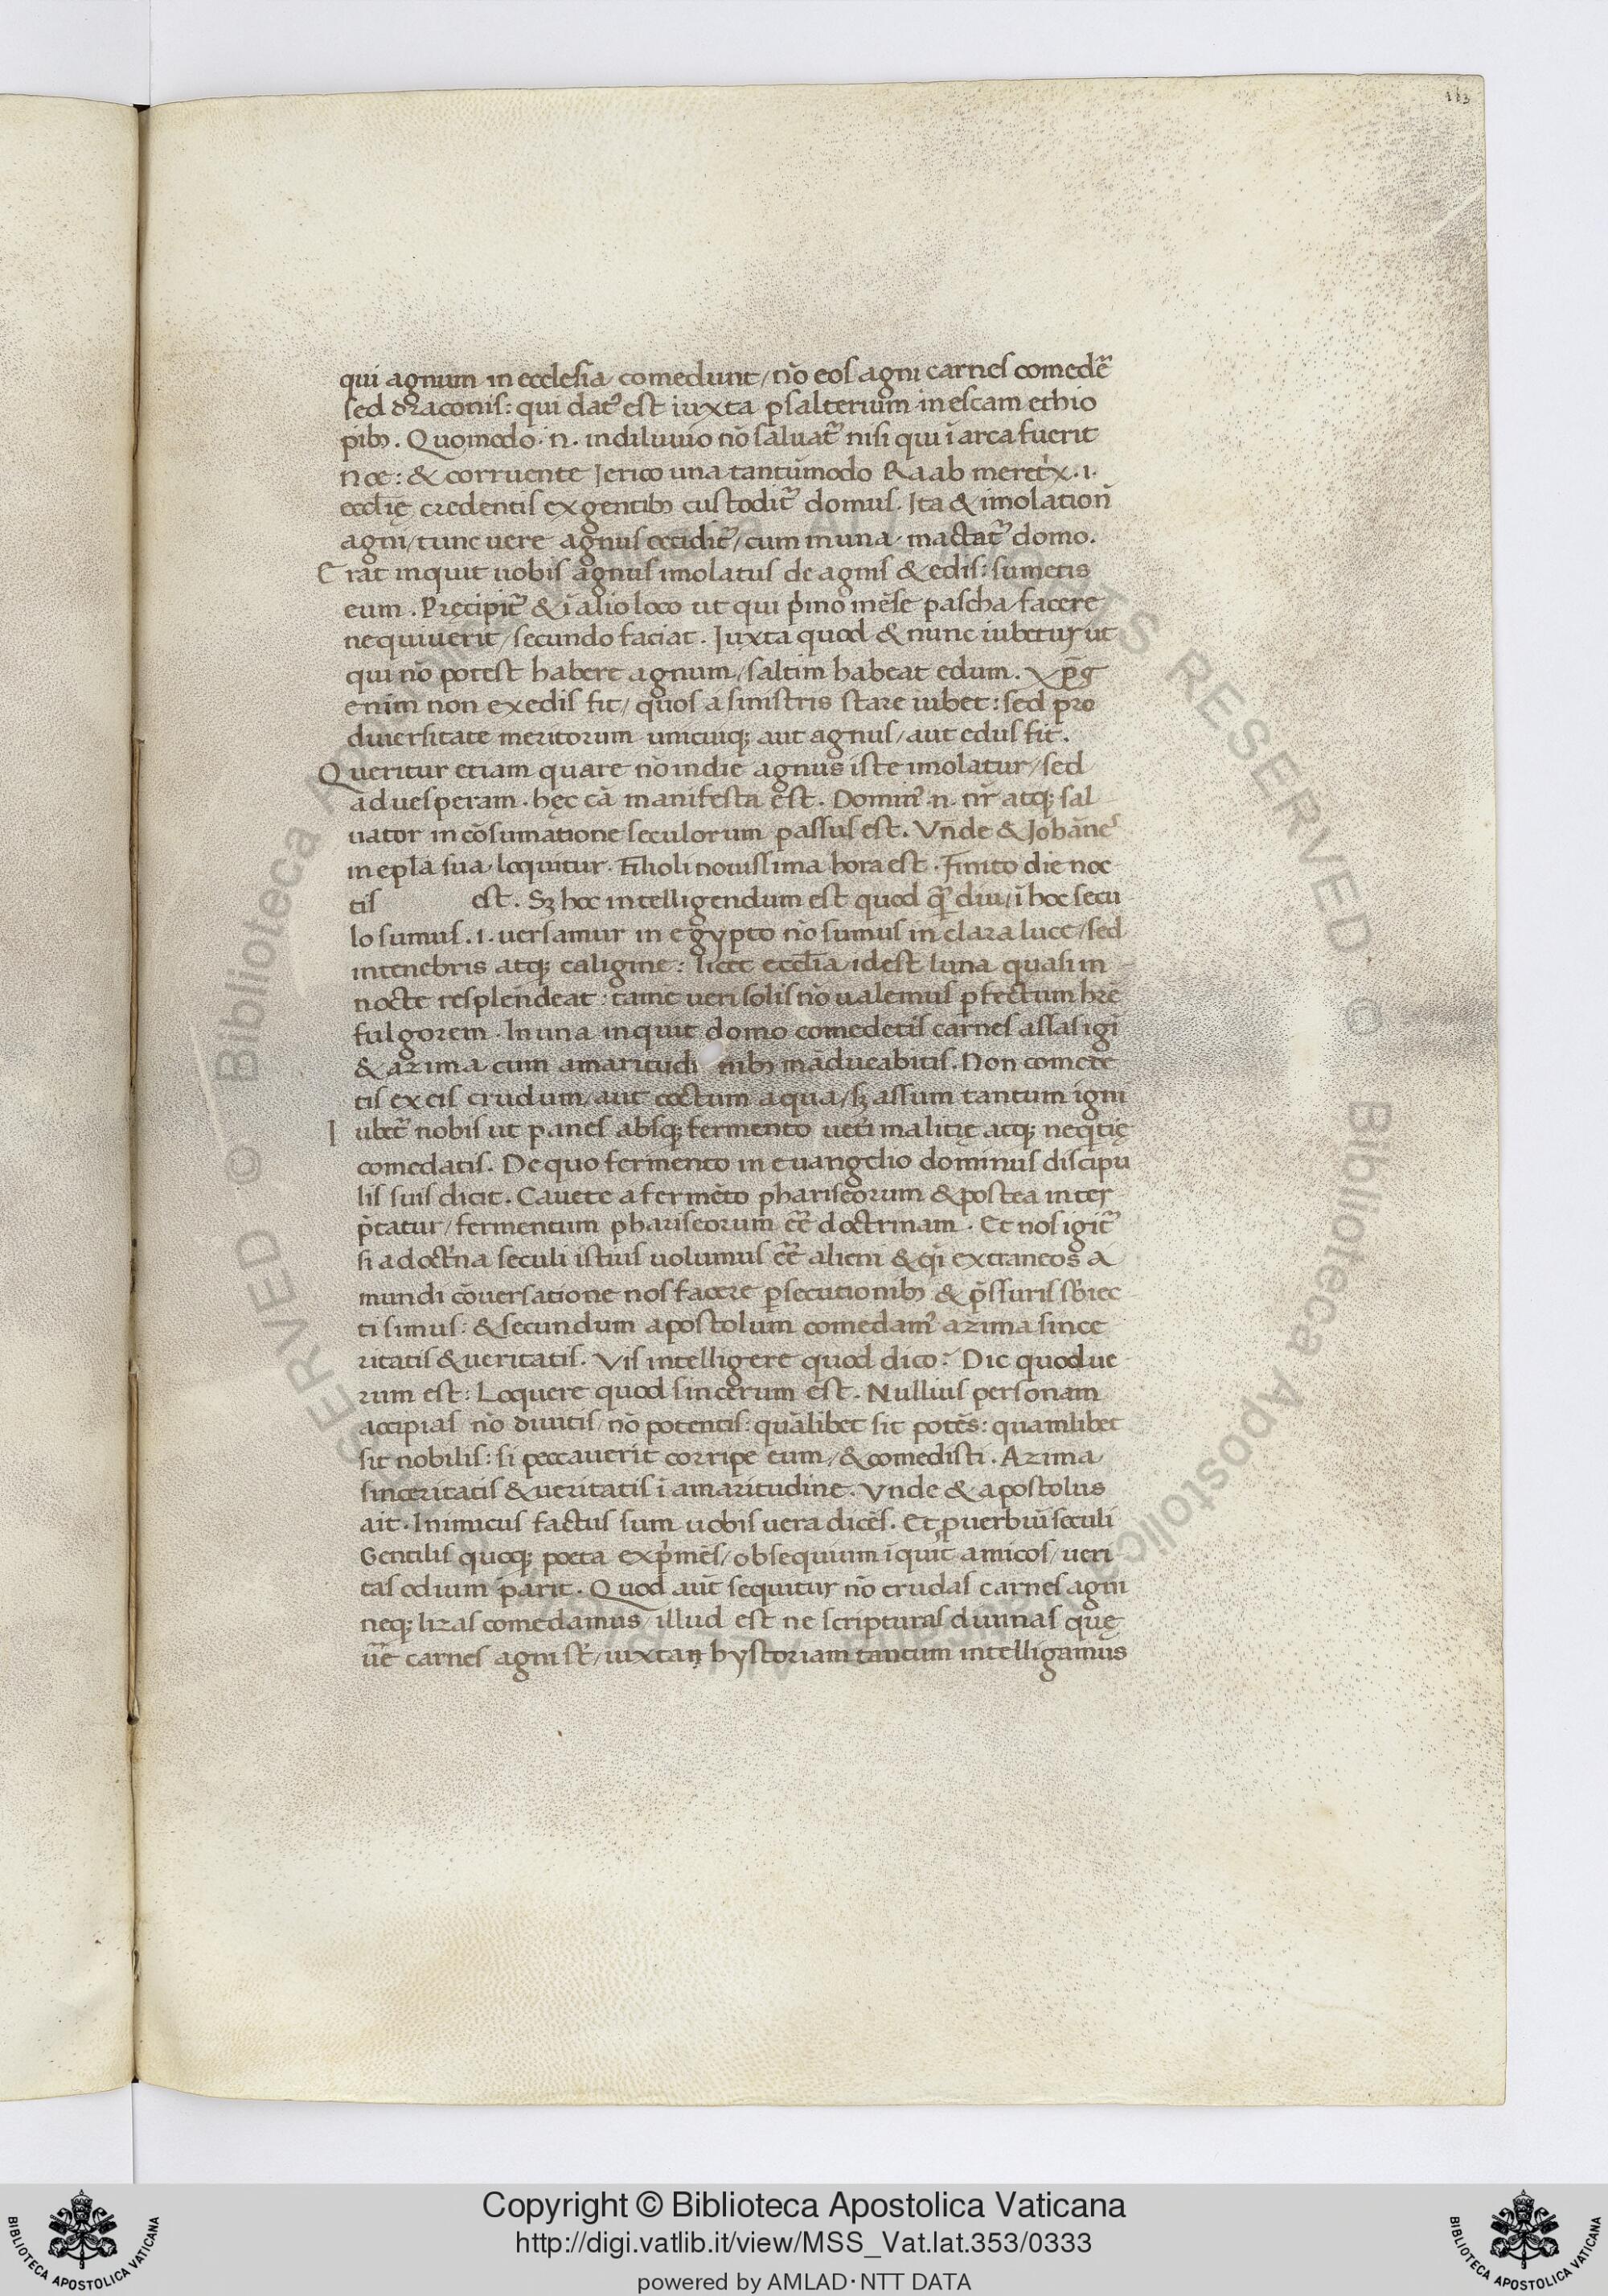 113
qui agnum in ecclesia comedunt / nõ eos agni carnes comedẽ
sed draconis: qui dat᾽ est iuxta psalterium in escam ethio
pib₉. Quomodo .n. in diluuio nõ saluat᷑ nisi qui ĩ arca fuerit
noe: & corruente Jerico una tantũmodo Raab meretͥx .i.
eccl̃ię credentis ex gentib₉ custodit᷑ domus. Ita & imolation̄
agni / tunc uere agnus occidit᷑ / cum in una mactat᷑ domo.
Erat inquit uobis agnus imolatus de agnis & edis: sumetis
eum. Pręcipit᷑ & ĩ alio loco ut qui pͥmo mẽse pascha facere
nequiuerit / secundo faciat. Juxta quod & nunc iubetur ut
qui nõ potest habere agnum / saltim habeat edum. Xp̄s
enim non ex edis fit / quos a sinistris stare iubet: sed pro
diuersitate meritorum unicuiq; aut agnus / aut edus fit.
Queritur etiam quare nõ in die agnus iste imolatur / sed
ad uesperam. hęc cã manifesta est. Domin᾽ .n. nr̃ atq; sal
uator in cõsumatione seculorum passus est. Vnde & Johãnes
in ep̃la sua loquitur. Filioli nouissima hora est. Finito die noc
tis est. Sꝫ hoc intelligendum est quod q̃ diu / ĩ hoc secu
lo sumus .i. uersamur in egypto nõ sumus in clara luce / sed
in tenebris atq; caligine: licet eccl̃ia idest luna quasi in
nocte resplendeat: tamẽ ueri solis nõ ualemus ꝑfectum hr̃e
fulgorem. In una inquit domo comedetis carnes assas igĩ
& azima cum amaritudi nib₉ mãducabitis. Non comede
tis ex eis crudum / aut coctum aqua / sꝫ assum tantum igni
Iubet᷑ nobis ut panes absq; fermento uet̃i malitię atq; neqͥtię
comedatis. De quo fermento in euangelio dominus discipu
lis suis dicit. Cauete a fermẽto phariseorum & postea inter
p̃tatur / fermentum phariseorum eẽ doctrinam. Et nos igit᷑
si a doctͥna seculi istius uolumus eẽ alieni & q̃i extraneos a
mundi cõuersatione nos facere ꝑsecutionib₉ & p̃ssuris sb̃iec
ti simus: & secundum apostolum comedam᾽ azima since
ritatis & ueritatis. Vis intelligere quod dico? Dic quod ue
rum est: Loquere quod sincerum est. Nullius personam
accipias nõ diuitis / nõ potentis: quãlibet sit potẽs: quamlibet
sit nobilis: si peccauerit corripe eum / & comedisti. Azima
sinceritatis & ueritatis ĩ amaritudine. Vnde & apostolus
ait. Inimicus factus sum uobis uera dicẽs. Et ꝓuerbiũ seculi
Gentilis quoq; poeta expͥmẽs / obsequium ĩquit amicos / ueri
tas odium parit. Quod aut̃ sequitur nõ crudas carnes agni
neq; lixas comedamus / illud est ne scripturas diuinas quę
ũe carnes agni st̃ / iuxtaṇ hystoriam tantum intelligamus
Copyright © Biblioteca Apostolica Vaticana
http://digi.vatlib.it/view/MSS_Vat.lat.353/0333
powered by AMLAD·NTT DATA